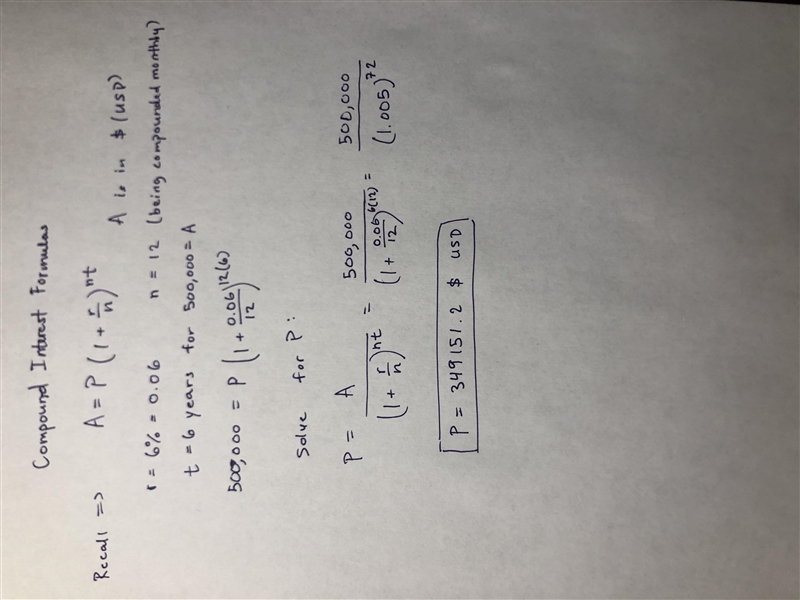 Compound Interest Formulas
Recall => A = P (1 + r/n)^nt A is in $ (USD)
r = 6% = 0.06 n = 12 (being compounded monthly)
t = 6 years for 500,000 = A
500,000 = P (1 + 0.06/12)^12(6)
Solve for P:
P = A/(1 + r/n)^nt = 500,000/(1 + 0.06/12)^6(12) = 500,000/(1.005)^72
P = 349151.2 $ USD